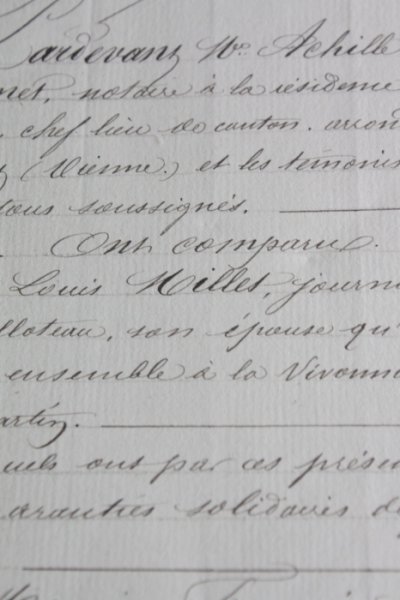 Pardevant Me Achille
net, notaire à la résidence
, chef lieu de canton. arron
(Vienne.) et les témoins
tous soussignés.
Ont comparu.
Louis Millet, journ
lloteau, son épouse qu'
ensemble à la Vivonn
artin.
uels ont par ces présen
aranties solidaires d